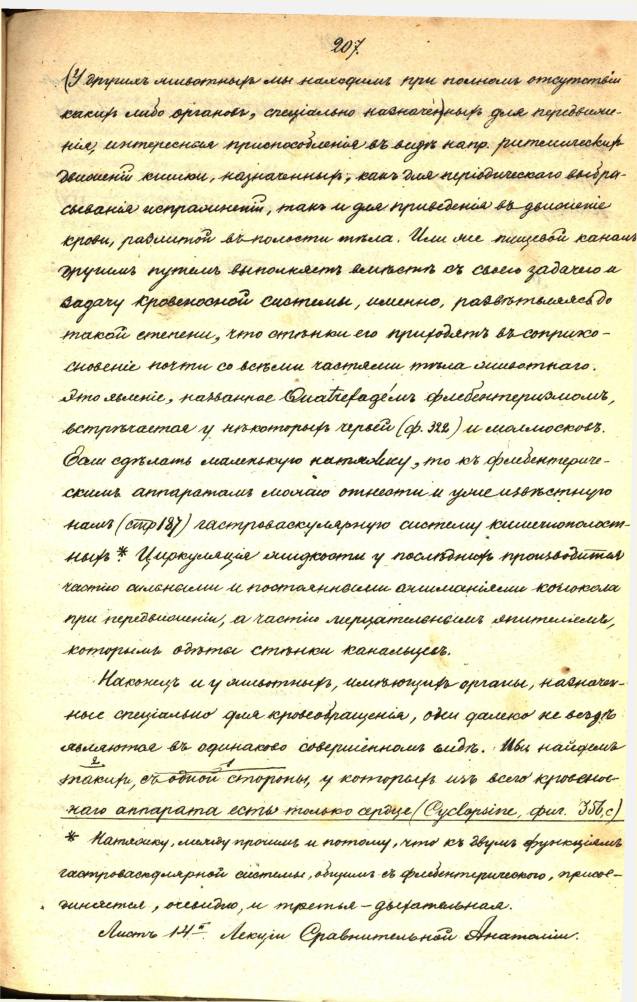 207.
(У другихъ животныхъ мы находимъ при полномъ отсутствіи
какихъ либо органовъ, спеціально назначен)ныхъ для передвиже-
нія, интересная приспособленія въ видѣ напр. ритмическихъ
движеній кишки, назначенныхъ, какъ для періодическаго выбра-
сыванія испражненій, такъ и для приведенія въ движеніе
крови, разлитой въ полости тѣла. Или же пищевой каналъ
другимъ путемъ выполняетъ вмѣстѣ съ своею задачею и
задачу кровеносной системы, именно, развѣтвляясь до
такой степени, что стѣнки его приходятъ въ соприко-
сновеніе почти со всѣми частями тѣла животнаго.
Это явленіе, названное Quatrefagé'мъ флебентеризмомъ,
встрѣчается у нѣкоторыхъ червей (ф. 322) и моллюсковъ.
Если сдѣлать маленькую натяжку, то къ флебентериче-
скимъ аппаратамъ можно отнести и уже извѣстную
намъ (стр 187) гастроваскулярную систему кишечнополост-
ныхъ * Циркуляція жидкости у послѣднихъ производится
частію сильными и постоянными сжиманіями колокола
при передвиженіи, а частію мерцательнымъ эпителіемъ,
которымъ одѣты стѣнки канальцевъ.
Наконецъ и у животныхъ, имѣющихъ органы, назначен-
ные спеціально для кровообращенія, они далеко не вездѣ
являются въ одинаково совершенномъ видѣ. Мы найдемъ
2 1
такихъ, съ одной стороны, у которыхъ изъ всего кровенос-
наго аппарата есть только сердце (Cyclopsine, фиг. 356, c)
* Натяжку, между прочимъ и потому, что къ двумъ функціямъ
гастроваскулярной системы, общимъ съ флебентерическою, присое-
диняется, очевидно, и третья – дыхательная.
Листъ 14й. Лекціи Сравнительной Анатоміи.